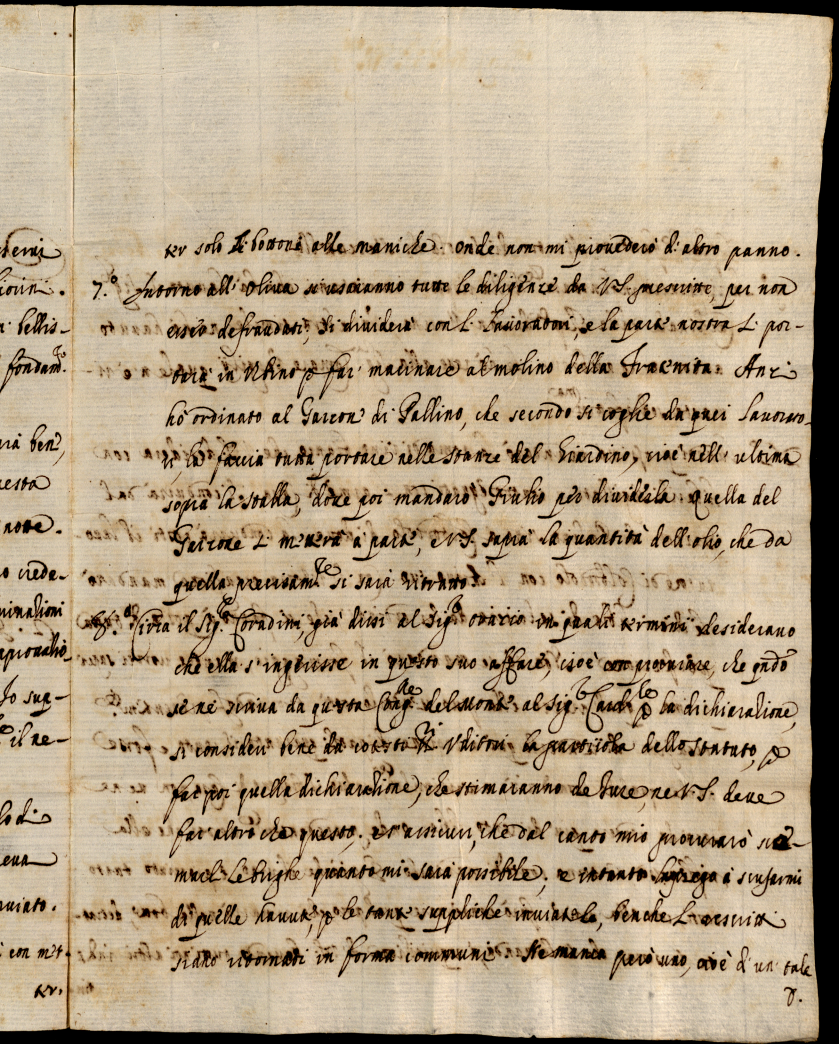 ter solo li bottoni alle maniche. onde non mi provederò d'altro panno.
7.º Intorno all'oliva si useranno tutte le diligenze da VS. prescritte, per non
esser defraudati; si dividerà con l. lavoratori, e la parte nostra si por-
terà in Urbino p far macinare al molino della Fraternita. Anzi
hò ordinato al Garzon' di Pallino, che secondo si coglie da quei lavorato-
ri, la faccia tutta portare nelle stanze del Giardino, cioè nell'ultima
sopra la stalla, dove poi mandarò Giulio per dividerla. Quella del
Garzone si metterà a parte, e VS. saprà la quantità dell'olio, che da
quella precisam.te si sarà ritratto.
8.º Circa il Sig.r Coradini, già dissi al Sig.r Orazio in quali termini desiderano
che ella s'ingerisse in questo suo affare, cioè con procurare, che qndo
se ne scriva da questa Cong.ne del Monte al Sig.r Card.le p la dichiarazione,
si consideri bene da cotesti SS.ri Uditori la particola dello statuto, p
far poi quella dichiarazione, che stimaranno de Iure, ne VS. deve
far altro che questo; et assicuri, che dal canto mio procurarò sce-
marle le brighe quanto mi sarà possibile; e intanto la prego à scusarmi
di quelle havute, p le tante suppliche inviatele, benche li rescritti
siano ritornati in forma communi. Ne manca però uno, cioè d'un tale
derni
fiorini.
bellis-
fondam.te
ben,
uesta
notte.
vede-
minazioni
Io sup-
il ne-
lo di
eva
nviato.
con met-
ter.